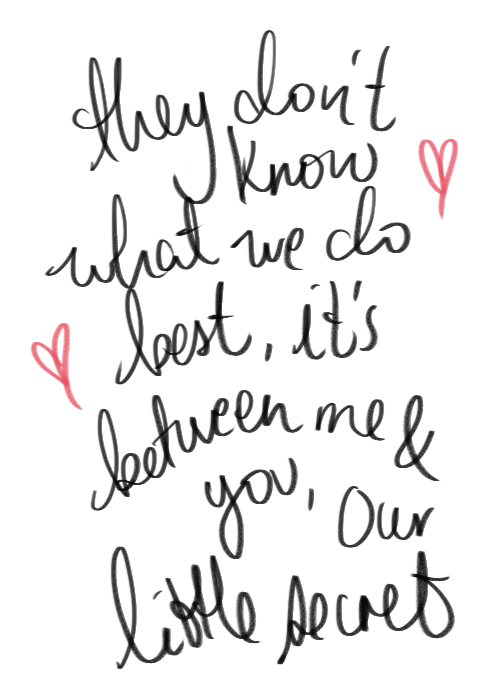 they don't
know
what we do
best, it's
between me &
you, Our
little secret